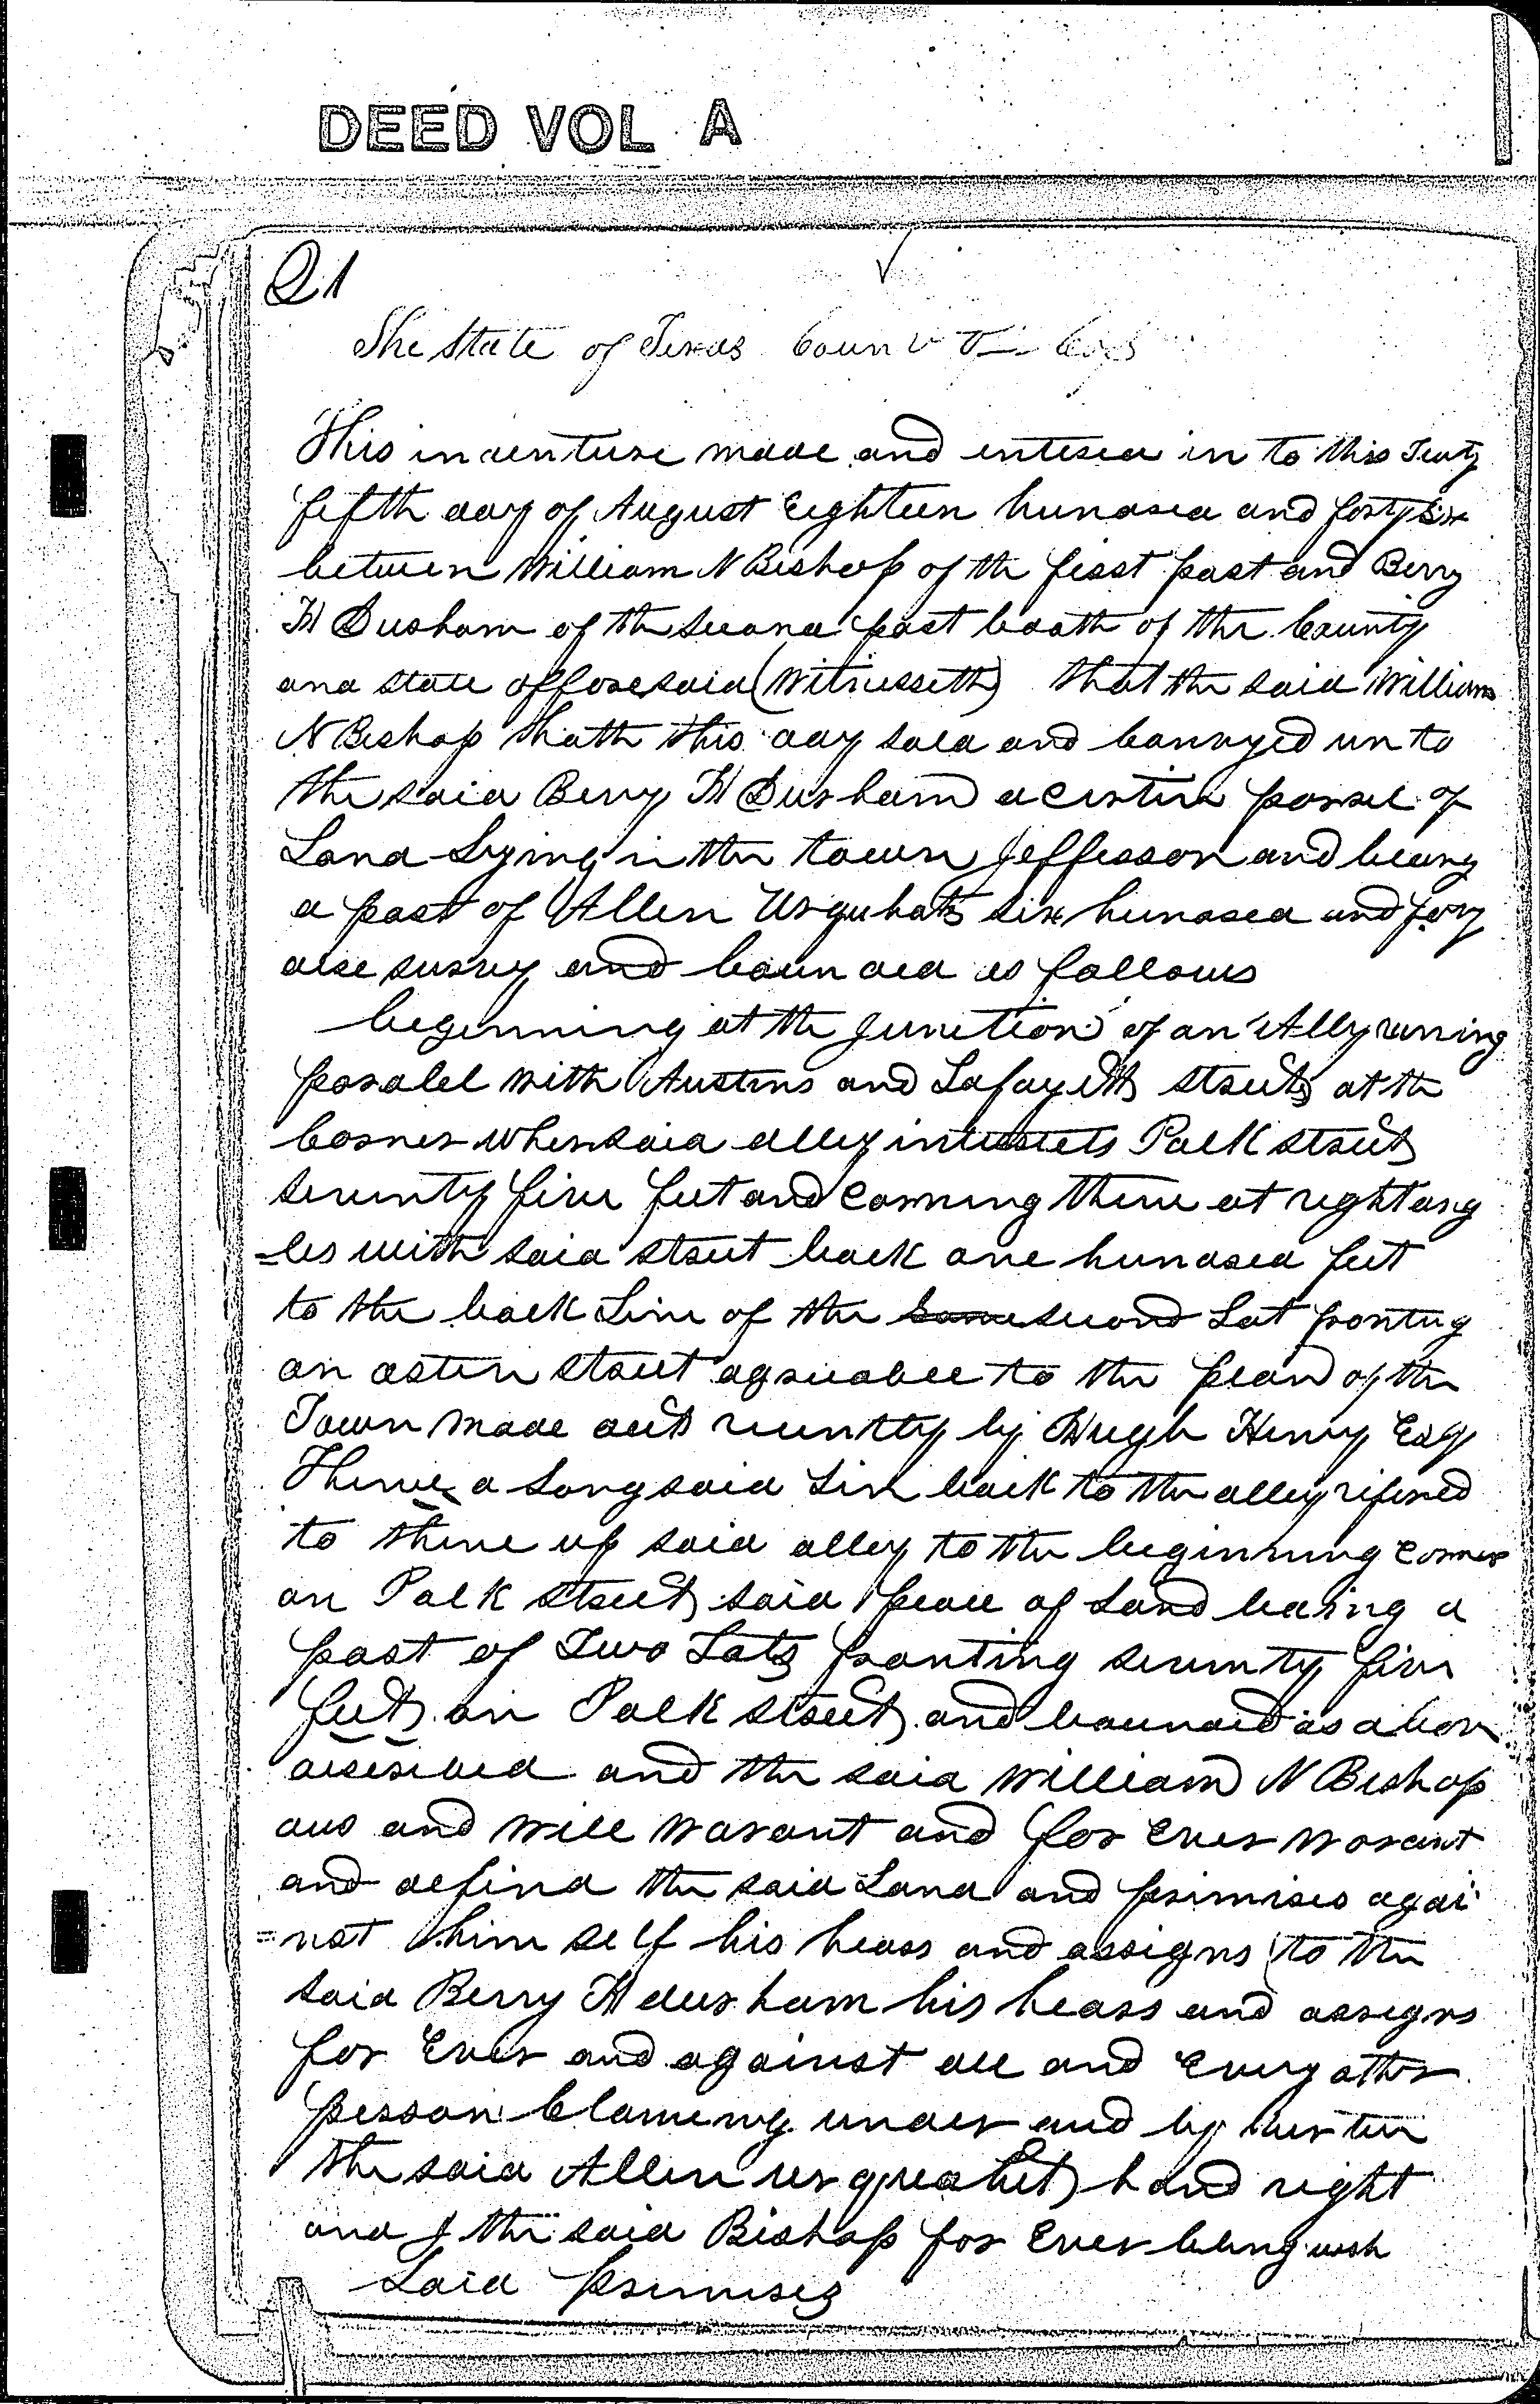 DEED VOL A
21
The State of Texas
This indenture made and entered in to this Twty
fifth day of August Eighteen hundred and forty Six
between William N Bishop of the first part and Berry
H Durham of the second part boath of the County
and State afforesaid (Witnesseth) that the said William
N Bishop hath this day sold and convoyed un to
the said Berry H Durham a certin parsel of
Land Lying in the town Jefferson and being
a part of Allen Urquhats six hundred and fory
acre survy and bounded as follows
beginning at the junction of an Ally runing
paralel with Austins and Lafayetts streets at the
Corner when said alley intersects Polk street
seventy five feet and corning thence at right ang
=les with said street back one hundred feet
to the back Line of the second Lot frontug
on astin street agreeable to the plan of the
Town made out reuntly by Hugh Henry Esq
Thence a Long said Line back to the alley refered
to thence up said alley to the beginning corner
on Polk street said peace of Land bearing a
part of Two Lots fronting seventy five
feet on Polk street and bounded as above
described and the said William N Bishop
dus and will warant and for Ever warant
and defind the said Land and primises agai
=nst him self his hears and assigns to the
said Berry H durham his hears and assigns
for Ever and against all and Every other
person Claming under and by
the said Allen hand right
and I the said Bishop for Ever
Said primises